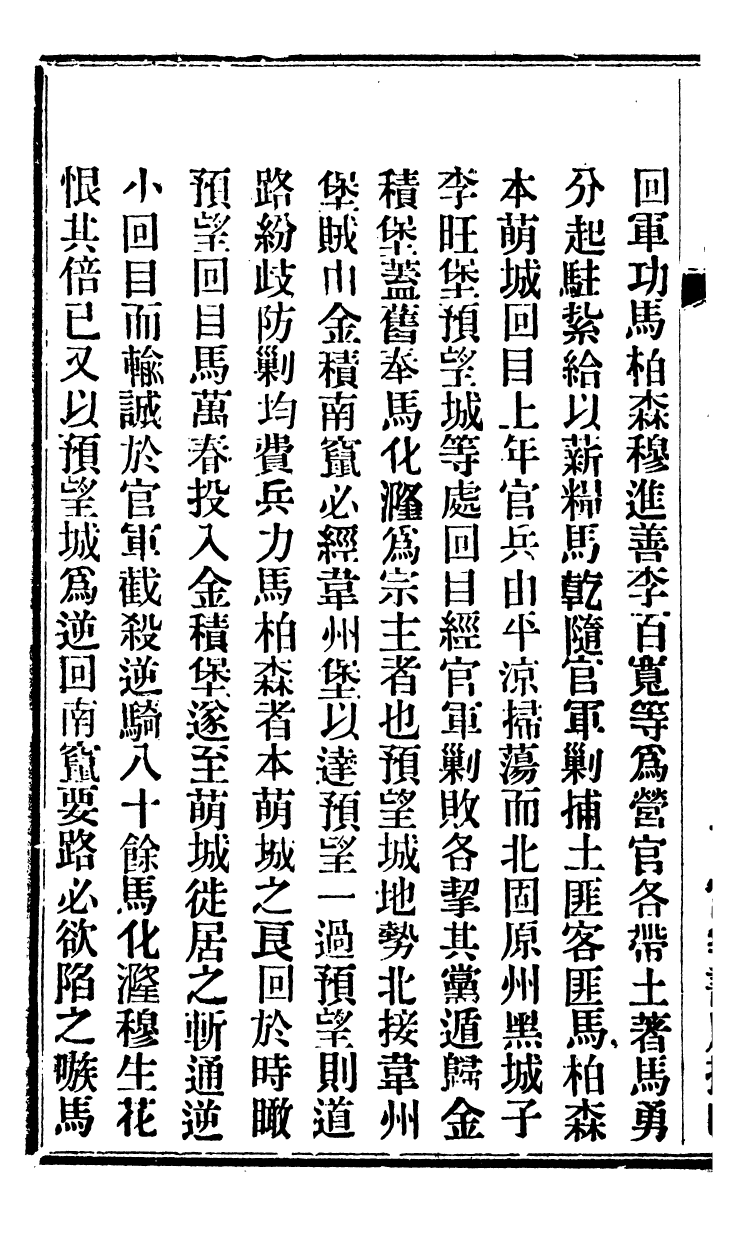 回軍功馬柏森穆進善李百寬等爲營官各帶土著馬勇
分起駐紮給以薪糧馬乾隨官軍剿捕土匪客匪馬柏森
本萌城回目上年官兵由平涼掃蕩而北固原州黑城子
李旺堡預望城等處回目經官軍剿敗各挈其黨遁歸金
積堡蓋舊奉馬化漋爲宗主者也預望城地勢北接韋州
堡賊由金積南竄必經韋州堡以達預望一過預望則道
路紛歧防剿均費兵力馬柏森者本萌城之良回於時瞰
預望回目馬萬春投入金積堡遂至萌城徙居之斬通逆
小回目而輸誠於官軍截殺逆騎八十餘馬化漋穆生花
恨其倍已又以預望城爲逆回南竄要路必欲陷之嗾馬